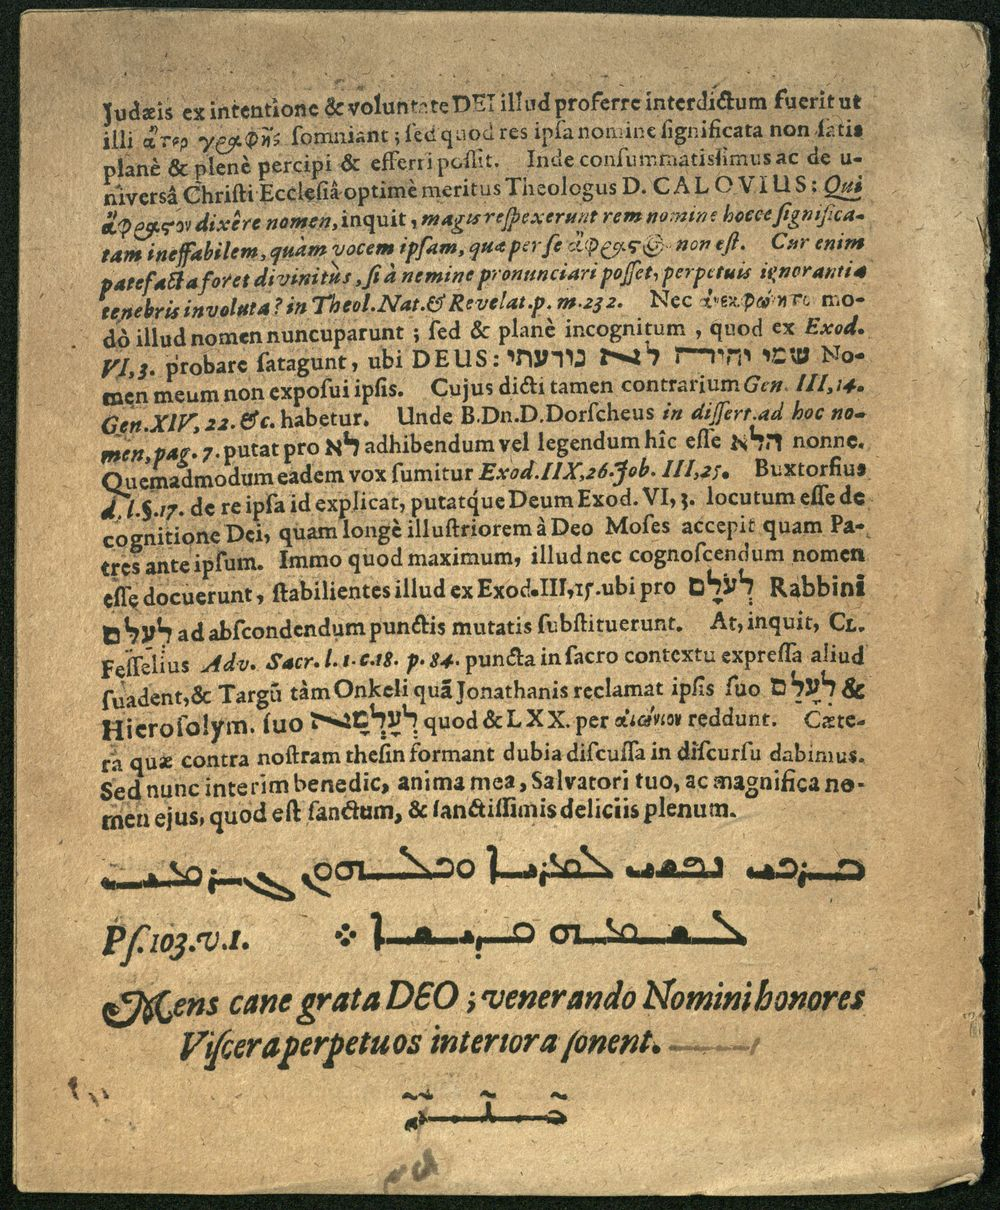 Judæis ex intentione & voluntate DEI illud proferre interdictum fuerit ut
illi ἄτερ γραφῆς somniant; sed quod res ipsa nomine significata non satis
planè & plenè percipi & efferri possit. Inde consummatissimus ac de u-
niversâ Christi Ecclesiâ optimè meritus Theologus D. CALOVIUS: Qui
ἄφραςον dixêre nomen, inquit, magis respexerunt rem nomine hocce significa-
tam ineffabilem, quàm vocem ipsam, quæ per se ἄφραςος non est. Cur enim
patefacta foret divinitùs, si à nemine pronunciari posset, perpetuis ignorantiæ
tenebris involuta? in Theol. Nat. & Revelat. p. m. 232. Nec mo-
dò illud nomen nuncuparunt; sed & planè incognitum, quod ex Exod.
VI, 3. probare satagunt, ubi DEUS: שמי יהוה לא נודעתי No-
men meum non exposui ipsis. Cujus dicti tamen contrarium Gen. III, 14.
Gen. XIV, 22. &c. habetur. Unde B. Dn. D. Dorscheus in dissert. ad hoc no-
men, pag. 7. putat pro לא adhibendum vel legendum hîc esse הלא nonne.
Quemadmodum eadem vox sumitur Exod. IIX, 26. Job. III, 25. Buxtorfius
d. l. §. 17. de re ipsa id explicat, putatque Deum Exod. VI, 3. locutum esse de
cognitione Dei, quam longè illustriorem à Deo Moses accepit quam Pa-
tres ante ipsum. Immo quod maximum, illud nec cognoscendum nomen
esse docuerunt, stabilientes illud ex Exod. III, 15. ubi pro לְעֹלָם Rabbini
לְעַלֵם ad abscondendum punctis mutatis substituerunt. At, inquit, CL.
Fesselius Adv. Sacr. l. 1. c. 18. p. 84. puncta in sacro contextu expressa aliud
suadent, & Targũ tàm Onkeli quã Jonathanis reclamat ipsis suo לְעָלַם &
Hierosolym. suo לְעָלְמָא quod & LXX. per αἰώνιον reddunt. Cæte-
ra quæ contra nostram thesin formant dubia discussa in discursu dabimus.
Sed nunc interim benedic, anima mea, Salvatori tuo, ac magnifica no-
men ejus, quod est sanctum, & sanctissimis deliciis plenum.
ܒܪܟܝ ܢܦܫܝ ܠܡܪܝܐ ܘܟܠܗܘܢ ܓܪܡܝ
ܠܫܡܗ ܩܕܝܫܐ
Ps. 103. v. 1.
Mens cane grata DEO; venerando Nomini honores
Viscera perpetuos interiora sonent.